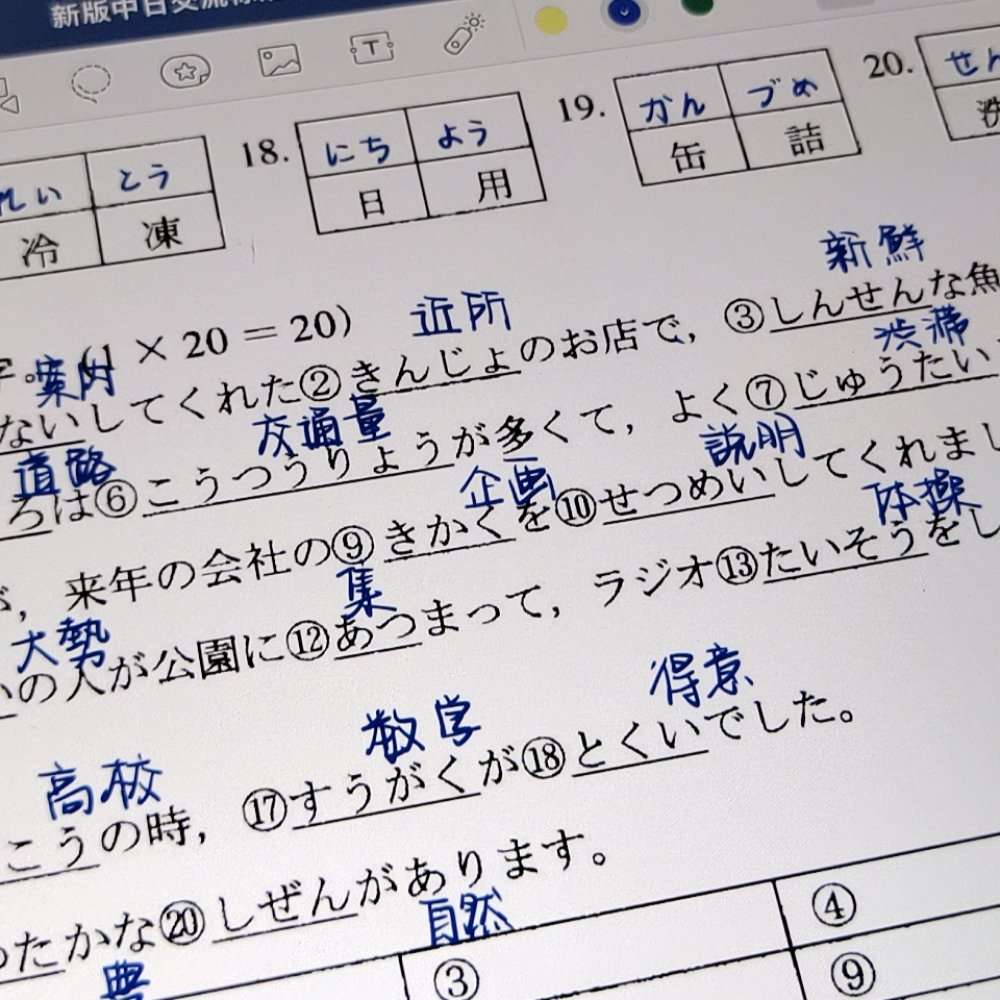 新版中日交流
T
18. 19. 20.
れい とう にち よう かん づめ せん
冷 凍 日 用 缶 詰 洗
新鮮
近所
字。(1 × 20 = 20)
案内 渋滞
ないしてくれた②きんじょのお店で，③しんせんな魚
道路 交通量 説明
ろは⑥こうつうりょうが多くて，よく⑦じゅうたい
企画 体操
が，来年の会社の⑨きかくを⑩せつめいしてくれまし
大勢 集
いの人が公園に⑫あつまって，ラジオ⑬たいそうをし
高校 数学 得意
こうの時，⑰すうがくが⑱とくいでした。
ったかな⑳しぜんがあります。
豊 自然
③ ④
⑨